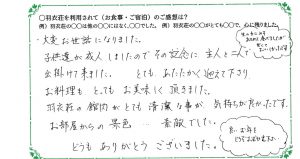 ○羽衣荘を利用されて（お食事・ご宿泊）のご感想は？
例）羽衣荘の○○は他の○○にはなく、○○でした。 例）羽衣荘の○○がとても○○で、心に残りました。
・大変お世話になりました。
子供達が成人しましたのでその記念に主人と二人で
出掛けて来ました。 とてもあたたかく迎えて下さり
お料理もとってもお美味しく頂きました。
羽衣荘の館内がとても清潔な事が 気持ちが良かったです。
お部屋からの景色 素敵でした。
どうもありがとうございました。
良いお年を